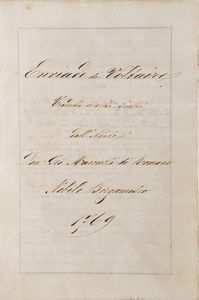 Enriade di Voltaire
Tradotta in versi sciolti
dall'Abate
Don Gio Marenzi di Romano
Nobile Bergamasco
1769